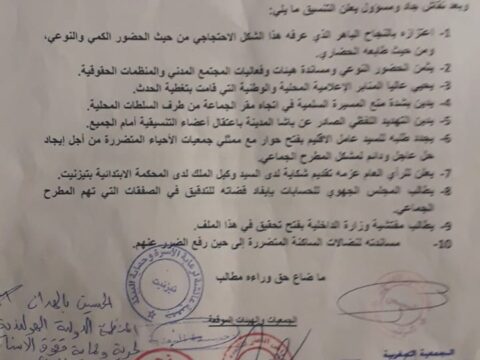 وبعد نقاش جاد ومسؤول يعلن التنسيق ما يلي:
1- اعتزازه بالنجاح الباهر الذي عرفه هذا الشكل الاحتجاجي من حيث الحضور الكمي والنوعي،
ومن حيث طابعه الحضاري.
2- يثمن الحضور النوعي ومساندة هيئات وفعاليات المجتمع المدني والمنظمات الحقوقية.
3- يحيي عاليا المنابر الإعلامية المحلية والوطنية التي قامت بتغطية الحدث.
4- يدين بشدة منع المسيرة السلمية في اتجاه مقر الجماعة من طرف السلطات المحلية.
5- يدين التهديد اللفظي الصادر عن باشا المدينة باعتقال أعضاء التنسيقية أمام الجميع.
6- يجدد طلبه للسيد عامل الاقليم بفتح حوار مع ممثلي جمعيات الأحياء المتضررة من أجل إيجاد
حل عاجل ودائم لمشكل المطرح الجماعي.
7- يعلن للرأي العام عزمه تقديم شكاية لدى السيد وكيل الملك لدى المحكمة الابتدائية بتيزنيت.
8- يطالب المجلس الجهوي للحسابات بإيفاد قضاته للتدقيق في الصفقات التي تهم المطرح
الجماعي.
9- يطالب مفتشية وزارة الداخلية بفتح تحقيق في هذا الملف.
10- مساندته لنضالات الساكنة المتضررة إلى حين رفع الضرر عنهم.
ما ضاع حق وراءه مطالب
الجمعيات والهيئات الموقعة
لرعاية الأسرة وحماية
تيزنيت
المنظمة الدولية